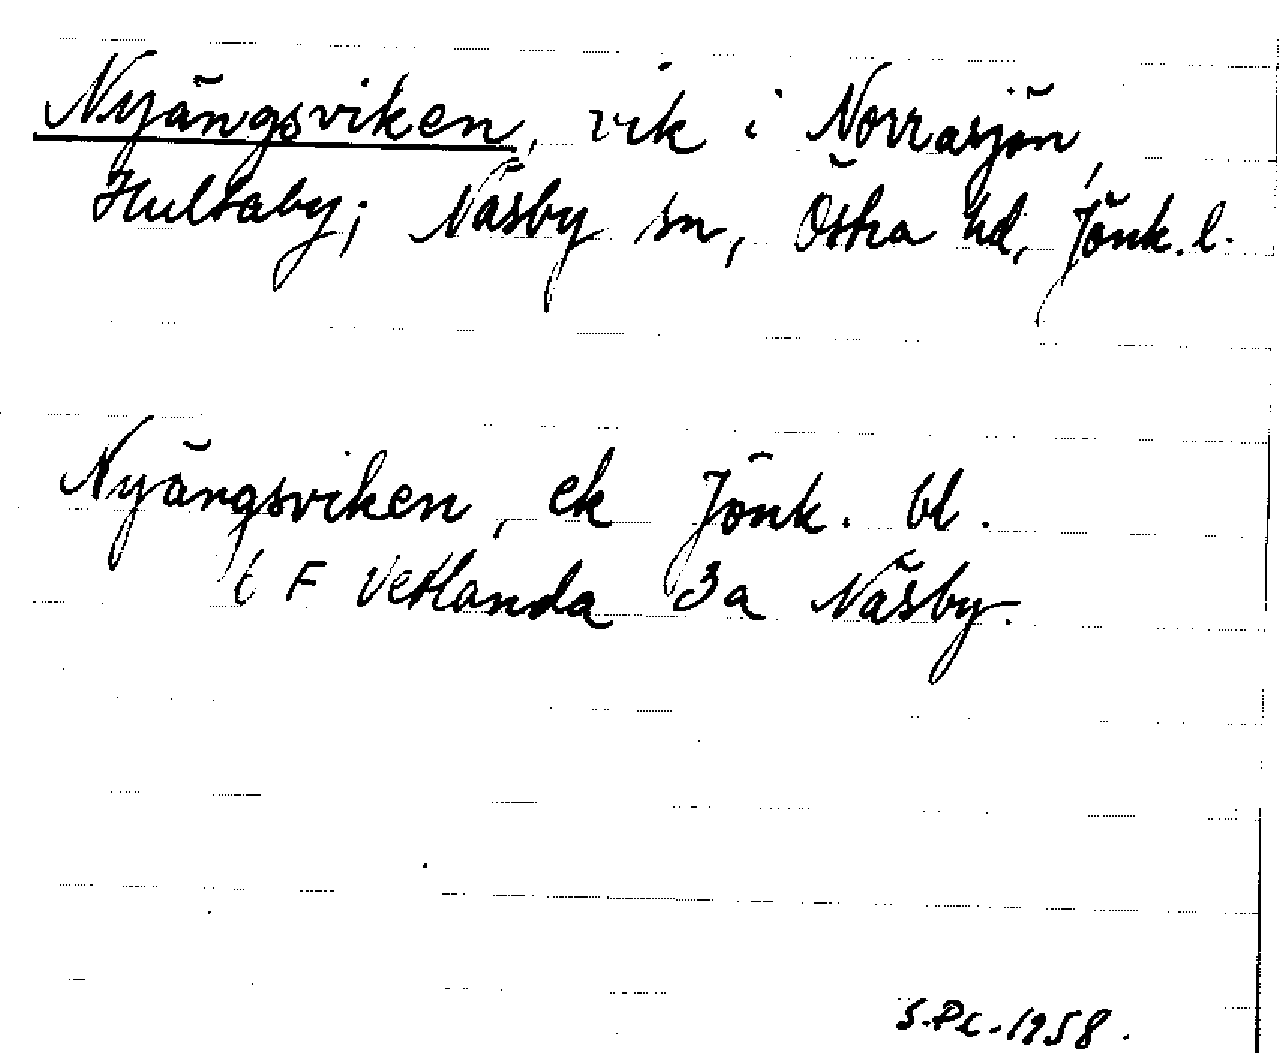 Nyängsviken, vik i Norrasjön,
Hultaby; Näsby sn, Östra hd, Jönk. l.
Nyängsviken, ek Jönk. bl.
6 F Vetlanda 3a Näsby.
S.Pc. 1958.